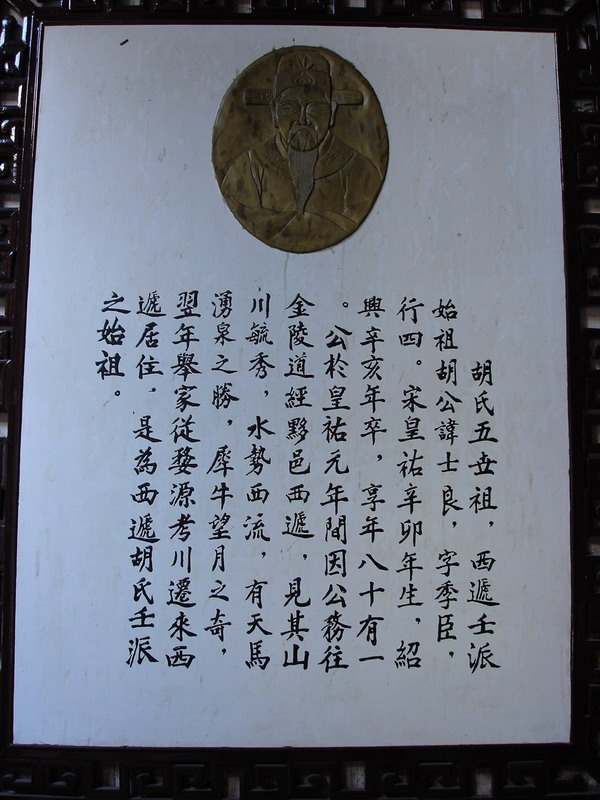 胡氏五世祖，西遞壬派
始祖胡公諱士良，字季臣，
行四。宋皇祐辛卯年生，紹
興辛亥年卒，享年八十有一
。公於皇祐元年間因公務往
金陵道經黟邑西遞，見其山
川毓秀，水勢西流，有天馬
湧泉之勝，犀牛望月之奇，
翌年舉家從婺源考川遷來西
遞居住．是為西遞胡氏壬派
之始祖。